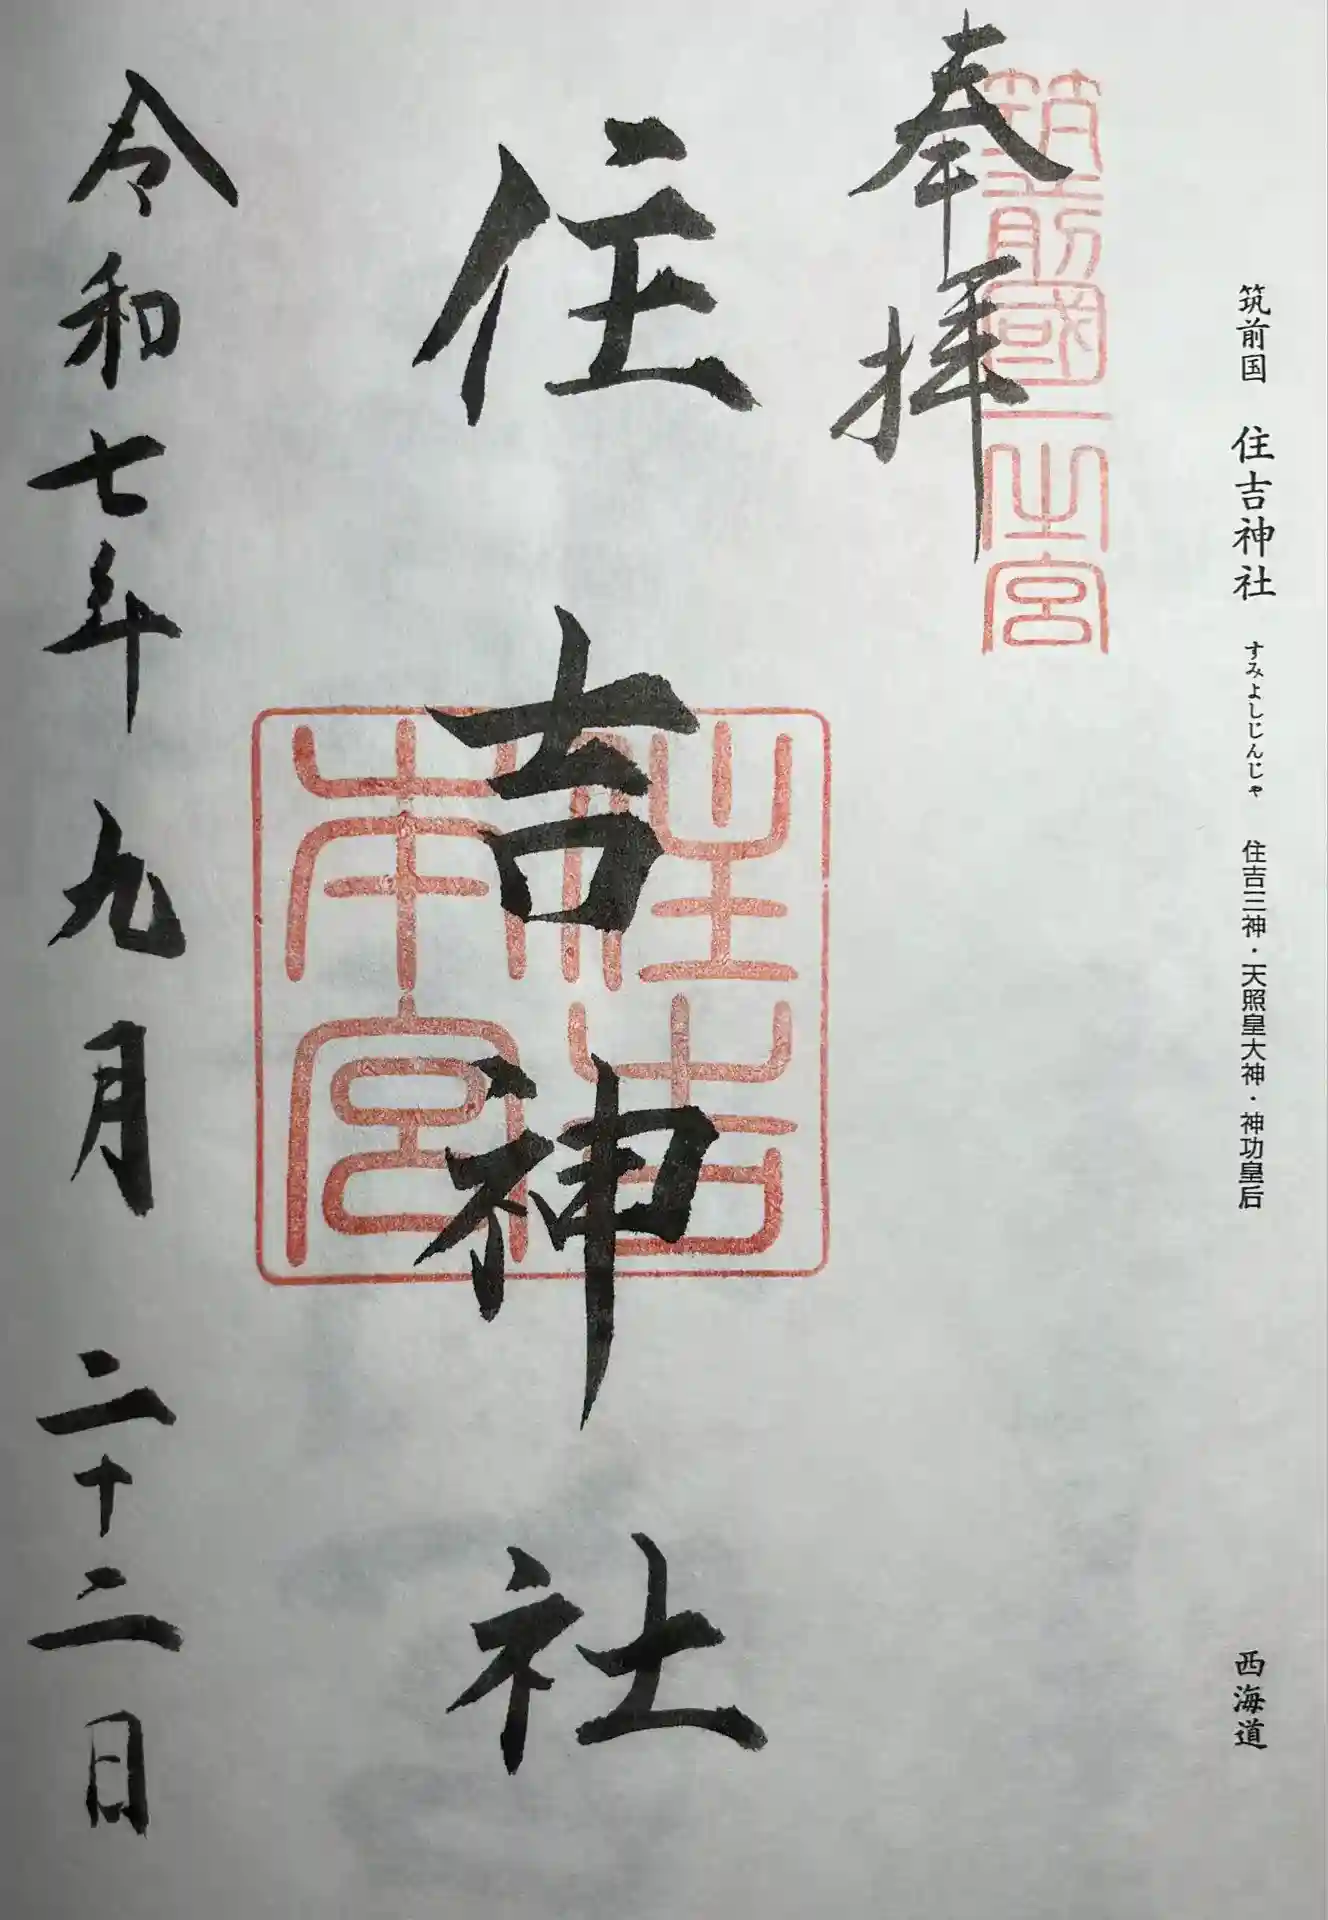 筑前国 住吉神社 すみよしじんじゃ 住吉三神・天照皇大神・神功皇后 西海道
筑前國一之宮
奉拝
住吉神社
住吉本宮
令和七年九月二十二日